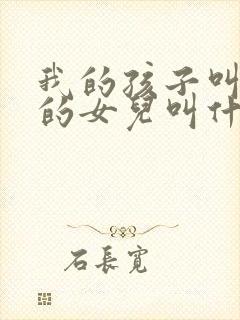 我的孩子叫
的女兒叫什
石長寬